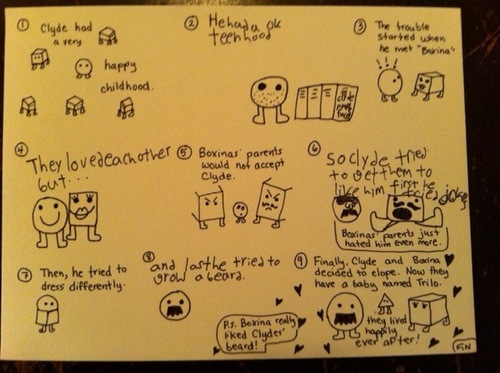 ①
Clyde had
a very
happy
childhood.
②
He had a ok
teenhood
③
The trouble
started when
he met "Boxina"
!!!
④
They loved each other
but....
⑤
Boxinas' parents
would not accept
Clyde.
⑥
So clyde tried
to get them to
like him first he
tried jokes
Boxinas' parents just
hated him even more.
⑦
Then, he tried to
dress differently.
⑧
and last he tried to
grow a beard.
P.S. Boxina really
liked Clydes'
beard!
⑨
Finally, Clyde and Boxina
decided to elope. Now they
have a baby named Trilo.
they lived
happily
ever after!
FIN